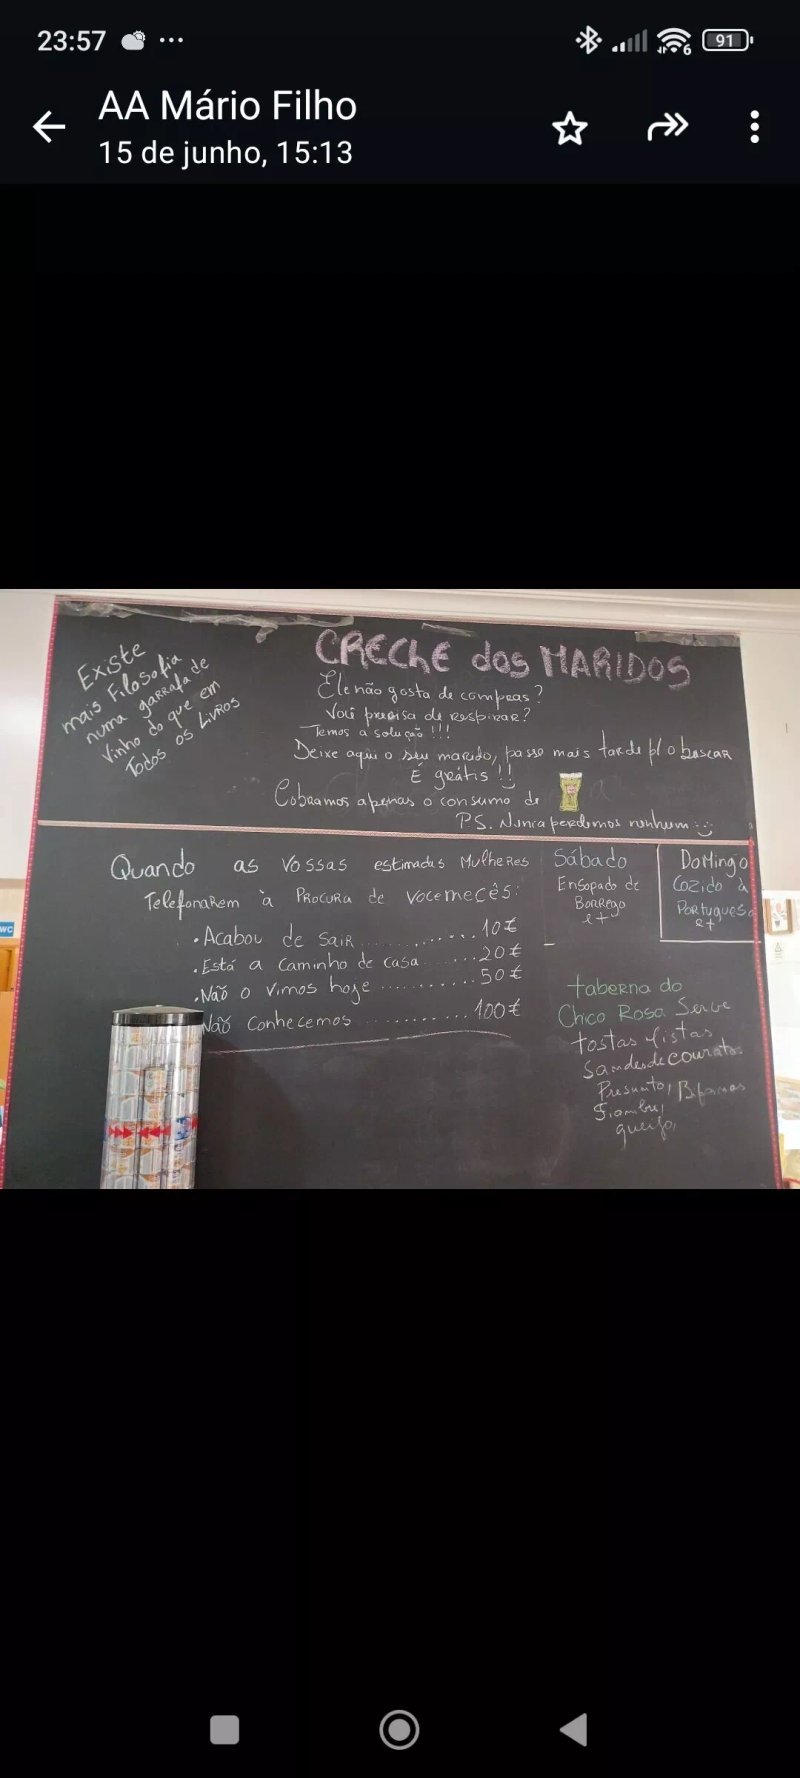 23:57
91
AA Mário Filho
15 de junho, 15:13
Existe
mais Filosofia
numa garrafa de
Vinho do que em
Todos os Livros
CRECHE dos MARIDOS
Ele não gosta de compras?
Você precisa de respirar?
Temos a solução!!!
Deixe aqui o seu marido, passe mais tarde p/ o buscar
É grátis!!
Cobramos apenas o consumo de
PS. Nunca perdemos nenhum :-)
Quando as vossas estimadas Mulheres
Telefonarem à Procura de vocemecês:
• Acabou de sair.............10€
• Está a caminho de casa.......20€
• Não o vimos hoje............50€
Não conhecemos............100€
Sábado
Ensopado de
Borrego
e+
Domingo
Cozido à
Portuguesa
e+
taberna do
Chico Rosa Serve
tostas Mistas
Sandes de couratos
Presunto, Bifanas
Fiambre,
queijo,
WC